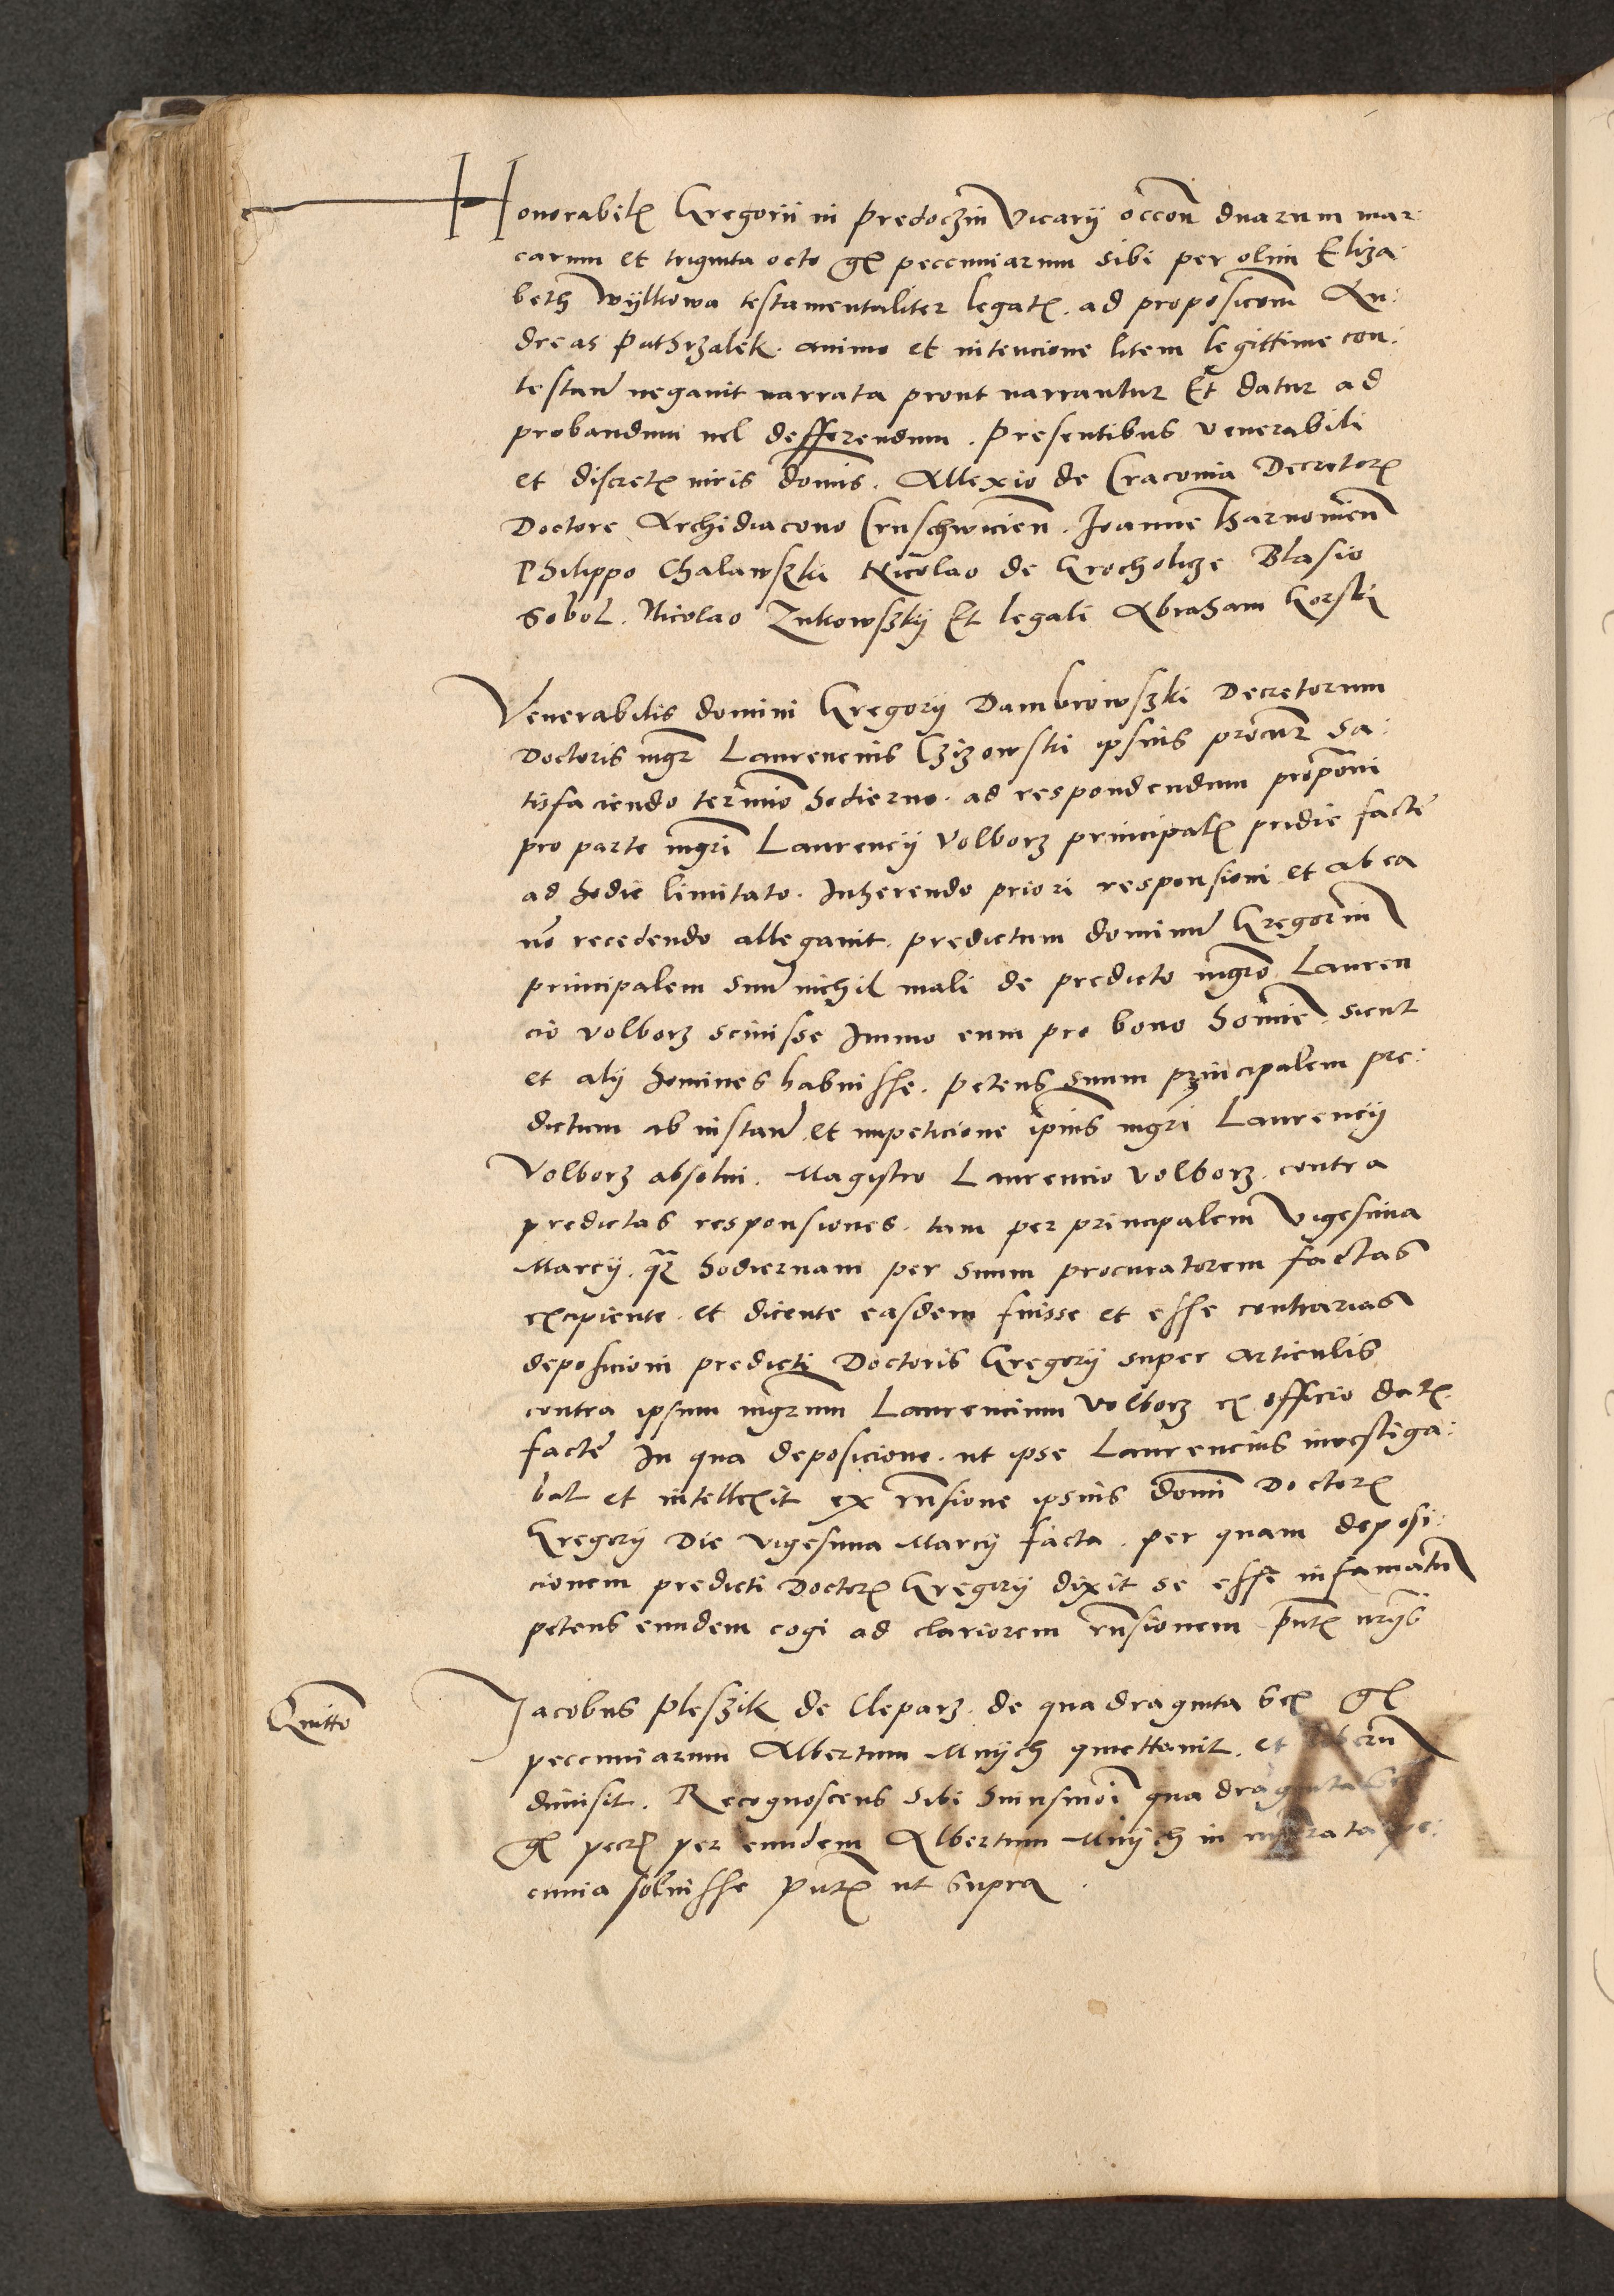 Honorabilꝭ Gregorii in Predoczin Vicarÿ occon̄ duarum mar:
carum et triginta octo gꝭ peccuniarum sibi per olim Eliza:
beth Wÿlkowa testamentaliter legatꝭ. ad proposicom̄ An:
dreas Pathrzalek. animo et intencione litem legittime con:
testan̄ negauit narrata prout narrantur Et datur ad
probandum uel defferendum. Presentibus Venerabili
et discretꝭ viris domīs. Allexio de Cracouia Decretorꝭ
Doctore Archidiacono Cruschwicien̄. Joanne Tharnowien̄
Philippo Chalawski Nicolao de Grocholicze Blasio
Sobol. Nicolao Zukowskÿ Et legali Abraham Gorski
Venerabilis domini Gregorÿ Dambrowski Decretorum
Doctoris mgr̄ Laurencius Czizowski ipsius procur̄ sa:
tisfaciendo termīo hodierno. ad respondendum propōni
pro parte mgrī Laurencÿ Volborz principalꝭ pridie facte
ad hodie limitato. Inherendo priori responsioni et ab ea
nō recedendo allegauit. predictum dominū Gregoriū
principalem suū nichil mali de predicto mgrō Lauren
cio Volborz sciuisse Immo eum pro bono homīe. sicut
et alÿ homines habuisse. Petens suum principalem pre:
dictum ab instan̄. et impeticione ip̄ius mgrī Laurencÿ
Volborz absolui. Magistro Laurencio Volborz. contra
predictas responsiones. tam per principalem Vigesima
Marcÿ. qꝫ hodiernam per suum procuratorem factas
excipiente. et dicente easdem fuisse et esse contrarias
deposicioni predicti Doctoris Gregorÿ super articulis
contra ipsum mgrum Laurencium Volborz ex officio datꝭ.
facte In qua deposicione. ut ipse Laurencius inuestiga:
bat et intellexit ex rn̄sione ipsius domī Doctorꝭ
Gregorÿ Die vigesima Marcÿ facta. per quam deposi:
cionem predicti Doctorꝭ Gregorÿ dixit se esse infamatū
petens eundem cogi ad clariorem rn̄sionem Pn̄tꝭ
Quitto
Jacobus Pleszik de Cleparz. de quadraginta sex gꝭ
peccuniarum Albertum Mnÿch quiettauit. et liberū
dimisit. Recognoscens sibi huiusmōi quadraginta sex
gꝭ peccꝭ per eundem Albertum Mnÿch in numerata pe:
cunia soluisse Pn̄tꝭ ut supra.